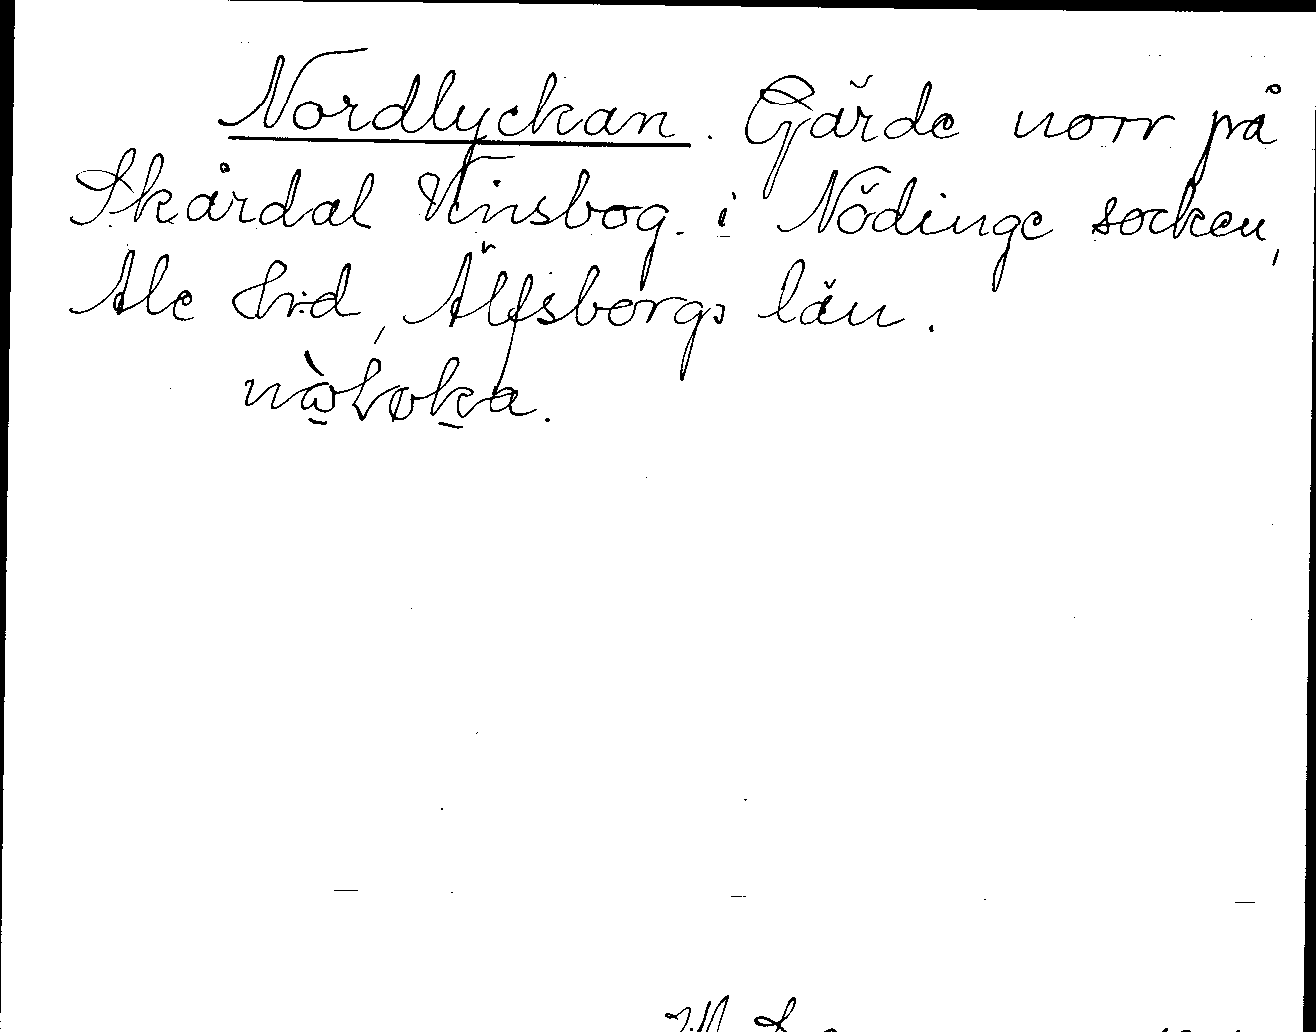 Nordlyckan. Gärde norr på
Skårdal Vinsbog. i Nödinge socken,
Ale Hrd, Älfsborgs län.